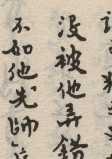 没被他弄錯
不如他先師